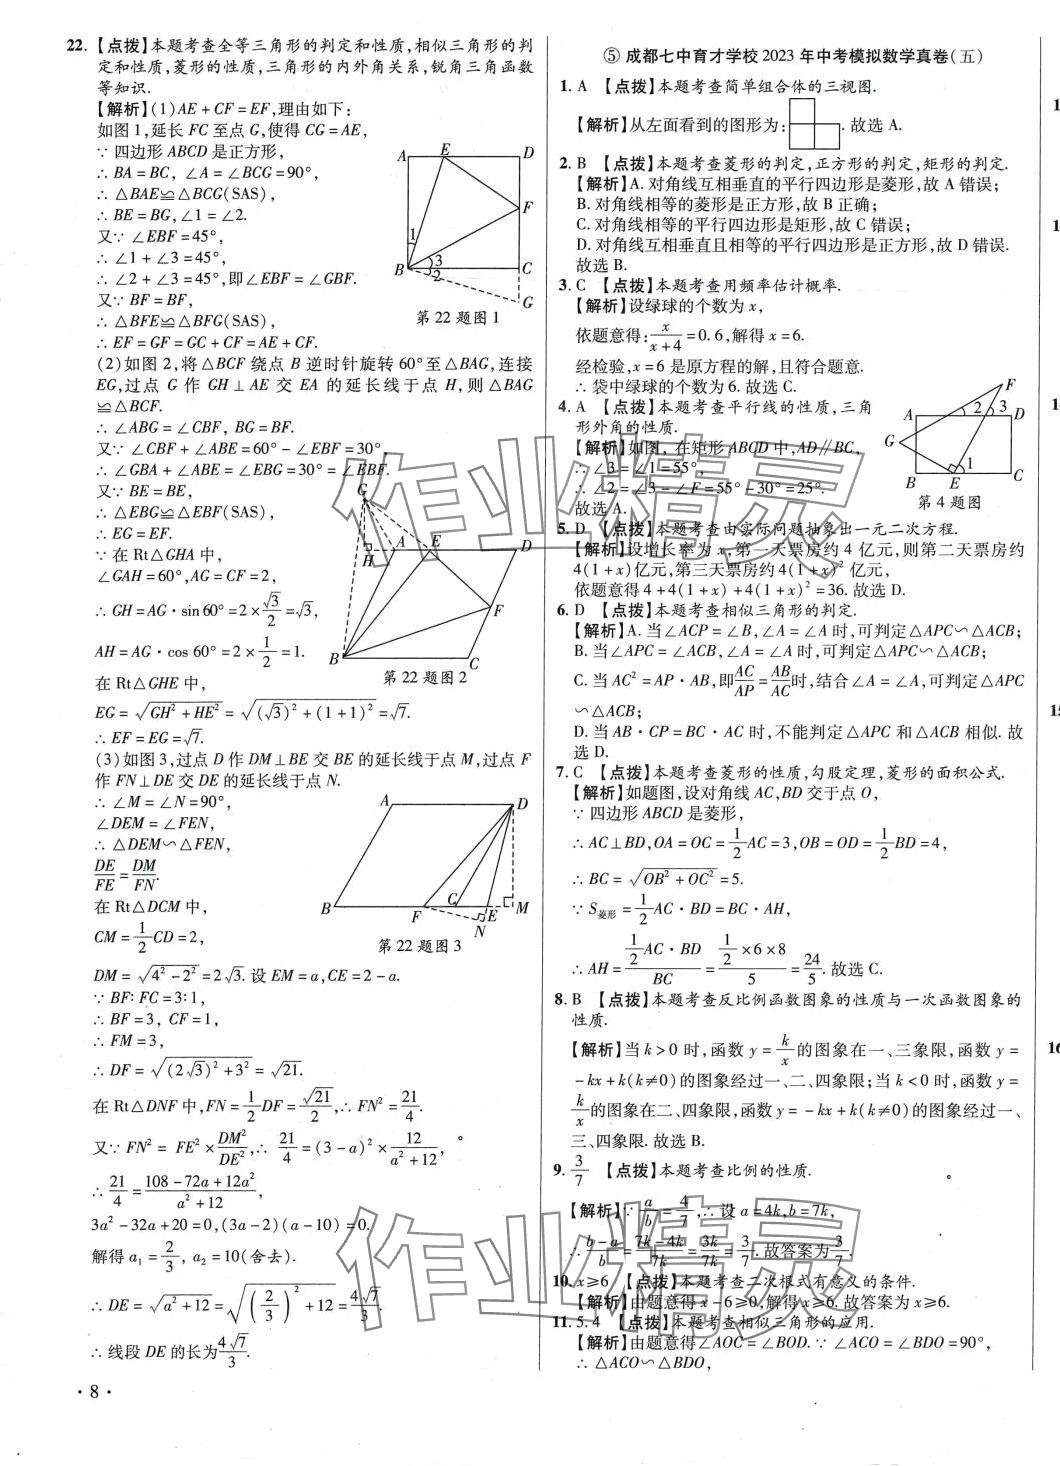 22. 【点拨】本题考查全等三角形的判定和性质,相似三角形的判
定和性质,菱形的性质,三角形的内外角关系,锐角三角函数
等知识.
【解析】(1)AE+CF=EF,理由如下:
如图1,延长 FC 至点 G,使得 CG=AE,
∵四边形 ABCD 是正方形,
∴BA=BC,∠A=∠BCG=90°,
∴△BAE≌△BCG(SAS),
∴BE=BG,∠1=∠2.
又∵∠EBF=45°,
∴∠1+∠3=45°,
∴∠2+∠3=45°,即∠EBF=∠GBF.
又∵BF=BF,
∴△BFE≌△BFG(SAS),
∴EF=GF=GC+CF=AE+CF.
A E D
F
1
3
2
B C
G
第22题图1
(2)如图2,将△BCF 绕点 B 逆时针旋转60°至△BAG,连接
EG,过点 G 作 GH⊥AE 交 EA 的延长线于点 H,则△BAG
≌△BCF.
∴∠ABG=∠CBF,BG=BF.
又∵∠CBF+∠ABE=60°-∠EBF=30°,
∴∠GBA+∠ABE=∠EBG=30°=∠EBF.
又∵BE=BE,
∴△EBG≌△EBF(SAS),
∴EG=EF.
∵在 Rt△GHA 中,
∠GAH=60°,AG=CF=2,
∴GH=AG·sin60°=2×√3/2=√3,
AH=AG·cos60°=2×1/2=1.
在 Rt△GHE 中,
EG=√(GH²+HE²)=√((√3)²+(1+1)²)=√7.
∴EF=EG=√7.
G
A E D
H
F
B C
第22题图2
(3)如图3,过点 D 作 DM⊥BE 交 BE 的延长线于点 M,过点 F
作 FN⊥DE 交 DE 的延长线于点 N.
∴∠M=∠N=90°,
∠DEM=∠FEN,
∴△DEM∽△FEN,
DE/FE=DM/FN.
在 Rt△DCM 中,
CM=1/2CD=2,
DM=√(4²-2²)=2√3. 设 EM=a,CE=2-a.
∵BF∶FC=3∶1,
∴BF=3,CF=1,
∴FM=3,
∴DF=√((2√3)²+3²)=√21.
在 Rt△DNF 中,FN=1/2DF=√21/2,∴FN²=21/4.
又∵FN²=FE²×DM²/DE²,∴21/4=(3-a)²×12/(a²+12),
∴21/4=(108-72a+12a²)/(a²+12),
3a²-32a+20=0,(3a-2)(a-10)=0.
解得 a₁=2/3,a₂=10(舍去).
∴DE=√(a²+12)=√((2/3)²+12)=4√7/3.
∴线段 DE 的长为4√7/3.
A D
B F C E M
N
第22题图3
·8·
⑤ 成都七中育才学校2023年中考模拟数学真卷(五)
1. A 【点拨】本题考查简单组合体的三视图.
【解析】从左面看到的图形为: . 故选 A.
2. B 【点拨】本题考查菱形的判定,正方形的判定,矩形的判定.
【解析】A. 对角线互相垂直的平行四边形是菱形,故 A 错误;
B. 对角线相等的菱形是正方形,故 B 正确;
C. 对角线相等的平行四边形是矩形,故 C 错误;
D. 对角线互相垂直且相等的平行四边形是正方形,故 D 错误.
故选 B.
3. C 【点拨】本题考查用频率估计概率.
【解析】设绿球的个数为 x,
依题意得:x/(x+4)=0.6,解得 x=6.
经检验,x=6 是原方程的解,且符合题意.
∴袋中绿球的个数为6. 故选 C.
4. A 【点拨】本题考查平行线的性质,三角
形外角的性质.
【解析】如图,在矩形 ABCD 中,AD∥BC,
∴∠3=∠1=55°,
∴∠2=∠3-∠F=55°-30°=25°.
故选 A.
F
A 2 3 D
G
1
B E C
第4题图
5. D 【点拨】本题考查由实际问题抽象出一元二次方程.
【解析】设增长率为 x,第一天票房约4亿元,则第二天票房约
4(1+x)亿元,第三天票房约4(1+x)²亿元,
依题意得4+4(1+x)+4(1+x)²=36. 故选 D.
6. D 【点拨】本题考查相似三角形的判定.
【解析】A. 当∠ACP=∠B,∠A=∠A 时,可判定△APC∽△ACB;
B. 当∠APC=∠ACB,∠A=∠A 时,可判定△APC∽△ACB;
C. 当 AC²=AP·AB,即AC/AP=AB/AC时,结合∠A=∠A,可判定△APC
∽△ACB;
D. 当 AB·CP=BC·AC 时,不能判定△APC 和△ACB 相似. 故
选 D.
7. C 【点拨】本题考查菱形的性质,勾股定理,菱形的面积公式.
【解析】如题图,设对角线 AC,BD 交于点 O,
∵四边形 ABCD 是菱形,
∴AC⊥BD,OA=OC=1/2AC=3,OB=OD=1/2BD=4,
∴BC=√(OB²+OC²)=5.
∵S菱形=1/2AC·BD=BC·AH,
∴AH=(1/2AC·BD)/BC=(1/2×6×8)/5=24/5. 故选 C.
8. B 【点拨】本题考查反比例函数图象的性质与一次函数图象的
性质.
【解析】当 k>0 时,函数 y=k/x的图象在一、三象限,函数 y=
-kx+k(k≠0)的图象经过一、二、四象限;当 k<0 时,函数 y=
k/x的图象在二、四象限,函数 y=-kx+k(k≠0)的图象经过一、
三、四象限. 故选 B.
9. 3/7 【点拨】本题考查比例的性质.
【解析】∵a/b=4/7,∴设 a=4k,b=7k,
∴(b-a)/b=(7k-4k)/7k=3k/7k=3/7. 故答案为3/7.
10. x≥6 【点拨】本题考查二次根式有意义的条件.
【解析】由题意得 x-6≥0,解得 x≥6. 故答案为 x≥6.
11. 5.4 【点拨】本题考查相似三角形的应用.
【解析】由题意得∠AOC=∠BOD. ∵∠ACO=∠BDO=90°,
∴△ACO∽△BDO,
作业精灵
作业精灵
1
1
15
16